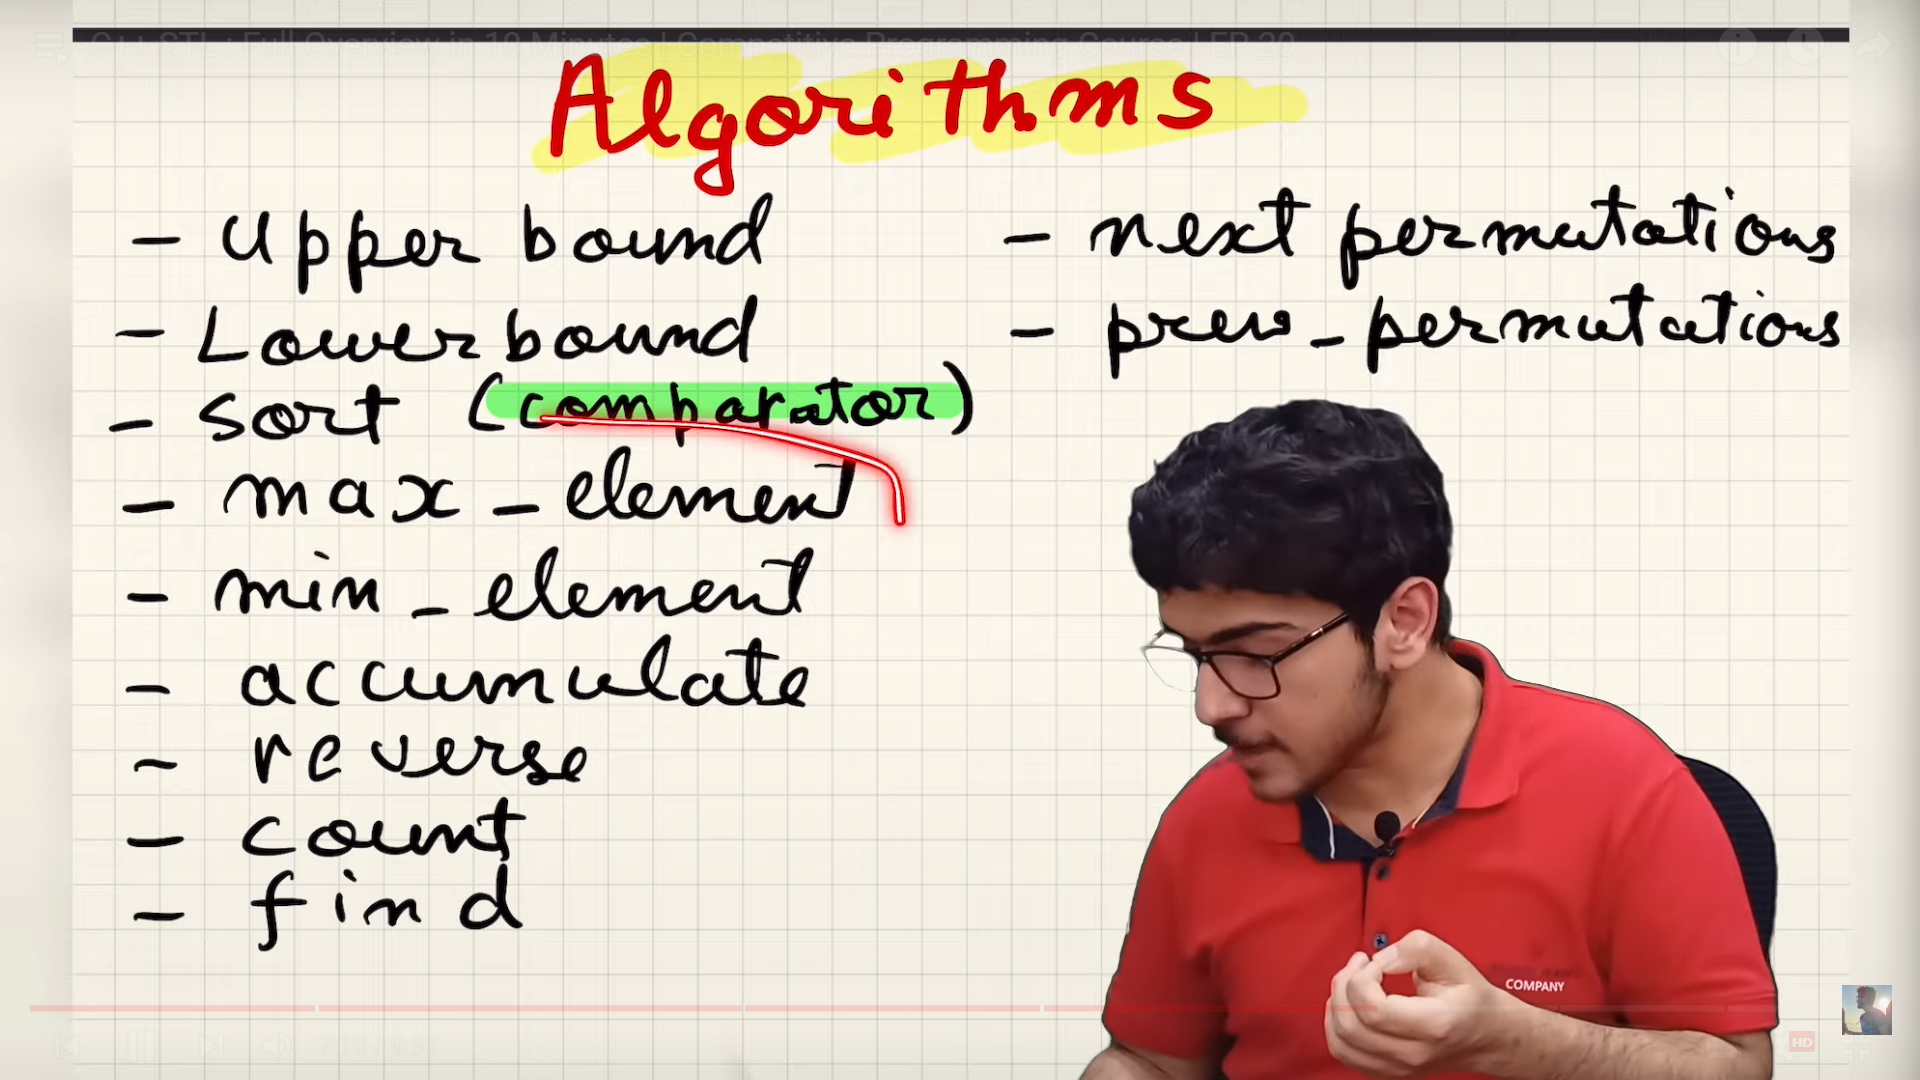 C++ STL : Full Overview in 10 Minutes | Competitive Programming Course | EP 20
Algorithms
- Upper bound
- Lower bound
- Sort (comparator)
- max_element
- min_element
- accumulate
- reverse
- count
- find
- next permutations
- prev_permutations
COMPANY
HD